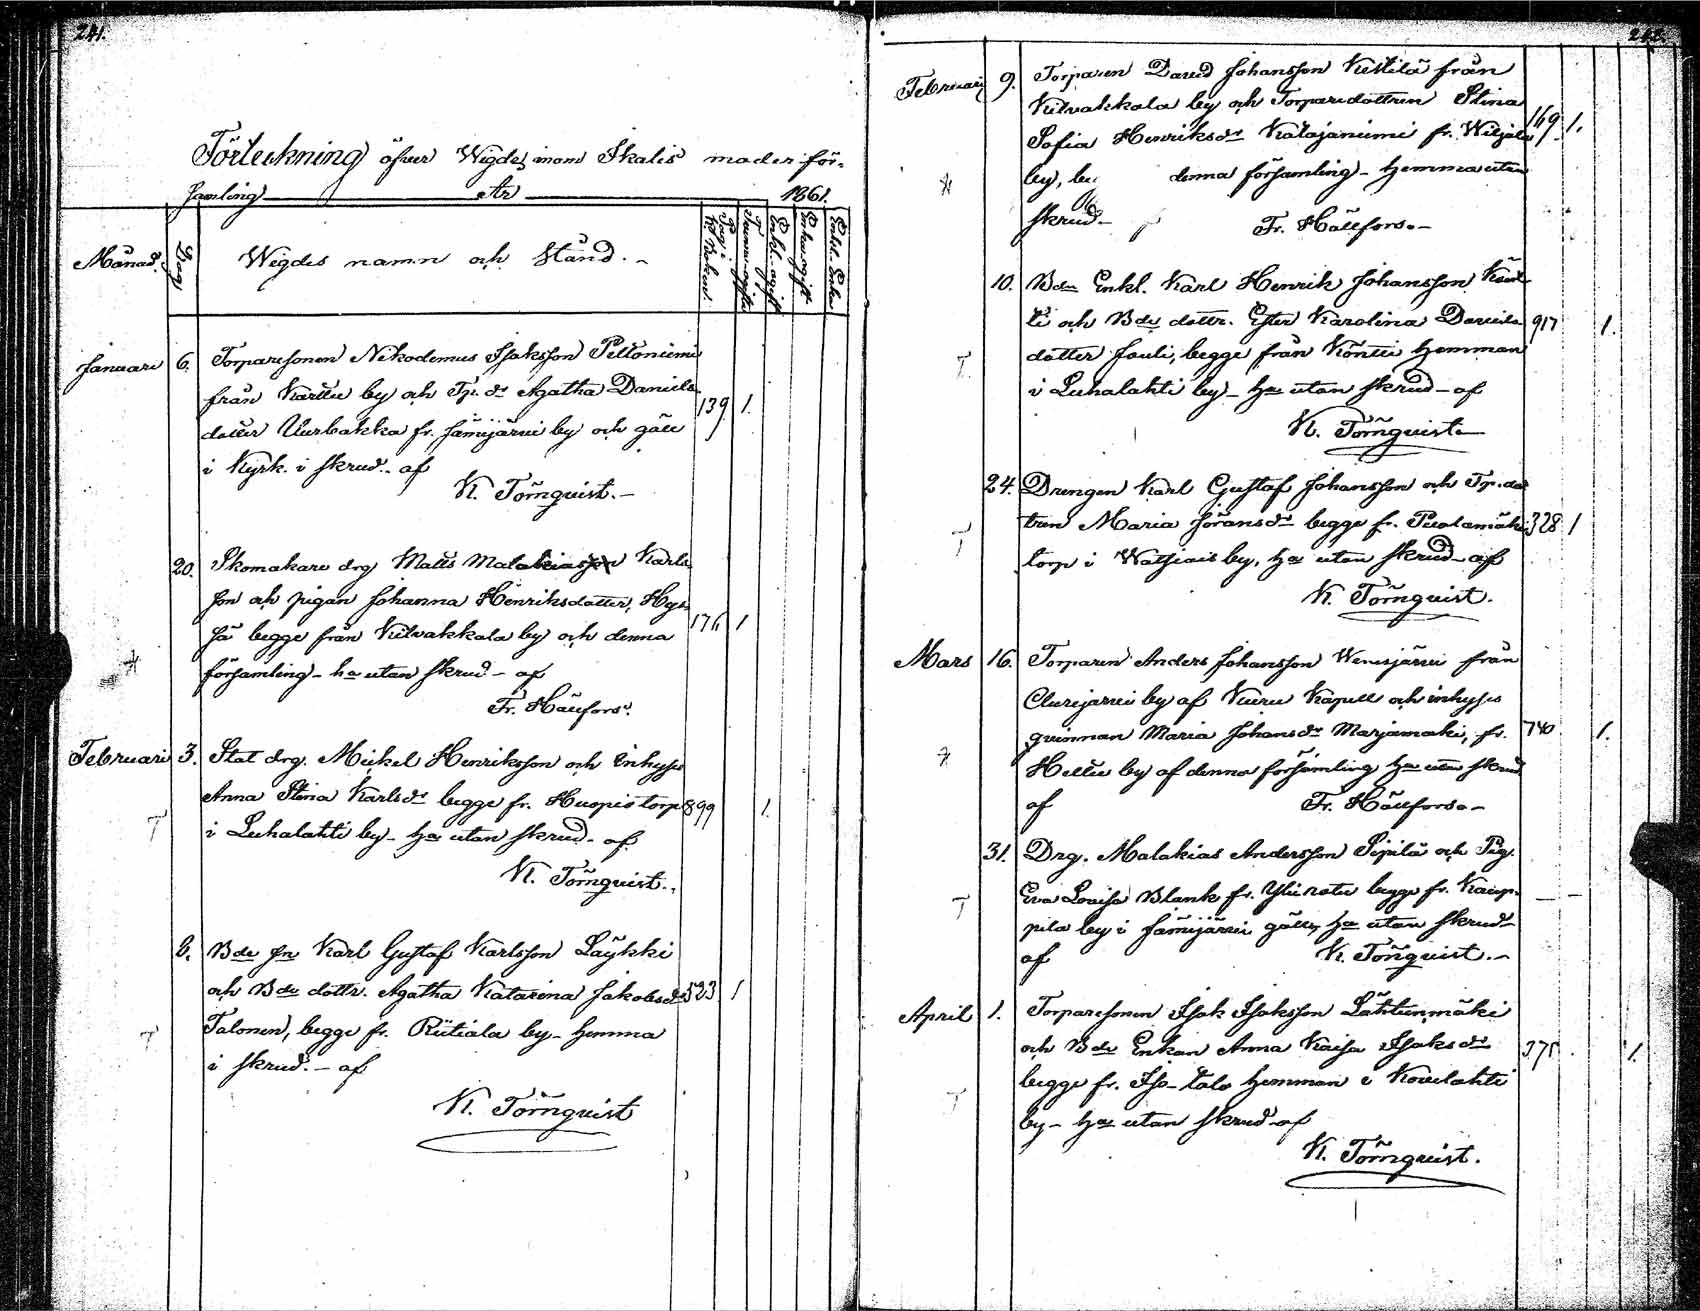 241.
Förteckning öfver Wigde, inom Ikalis moder för-
samling År 1861.
Månad. Dag Wigdes namn och Stånd.-
Januari 6. Torparesonen Nikodemus Isaksson Peltoniemi
från Karttu by och Tp. dr Agatha Daniels
dotter Uurbakka fr. Jämijärvi by och gäll 139 1.
i Kyrk. i skrud.. af
K. Törnquist.-
20. Skomakare drg Matts Malakiasson Karls
son och pigan Johanna Henriksdotter,
begge från Kilvakkala by och denna 176 1
församling - ha utan skrud - af
Fr. Hällfors.
Februari 3. Stat drg. Mickel Henriksson och Inhyses
Anna Stina Karlsdr begge fr. Huopis torp 899 1.
i Luhalahti by - ha utan skrud - af
K. Törnquist.
6. Bde sn Karl Gustaf Karlsson Läykki
och Bde dottr. Agatha Katarina Jakobsdr 523 1
Talonen, begge fr. Riitiala by - hemma
i skrud. - af
K. Törnquist
Februari 9. Torparen David Johansson Kittilä från
Kilvakkala by och Torparedottren Stina
Sofia Henriksdr Katajaniemi fr. Wiljala 169 1.
by, denna församling - hemma utan
skrud -
Fr. Hällfors.-
10. Bde Enkl. Karl Henrik Johansson
och Bde dottr. Ester Karolina Daniels 917 1.
dotter Jouli, begge från Köntti hemman
i Luhalahti by - ha utan skrud - af
K. Törnquist.
24. Drengen Karl Gustaf Johansson och Tp. dot
tren Maria Göransdr begge fr. Puolamäki 328 1
torp i Watsiais by, ha utan skrud - af
K. Törnquist.
Mars 16. Torparen Anders Johansson Wenesjärvi från
by af Kuru Kapell och inhyses
quinnan Maria Johansdr Marjamäki, fr. 740 1.
Heittu by af denna församling ha utan skrud
af Fr. Hällfors.-
31. Drg. Malakias Andersson Sipilä och Pig.
Eva Lovisa Blank fr. Yli rotu begge fr. Kaup-
pila by i Jämijärvi gäll, ha utan skrud -
af K. Törnquist.-
April 1. Torparesonen Isak Isaksson Lähteenmäki
och Bde Enkan Anna Kaisa Isaksdr 375 1.
begge fr. Iso-talo hemman i Kovelahti
by - ha utan skrud - af
K. Törnquist.